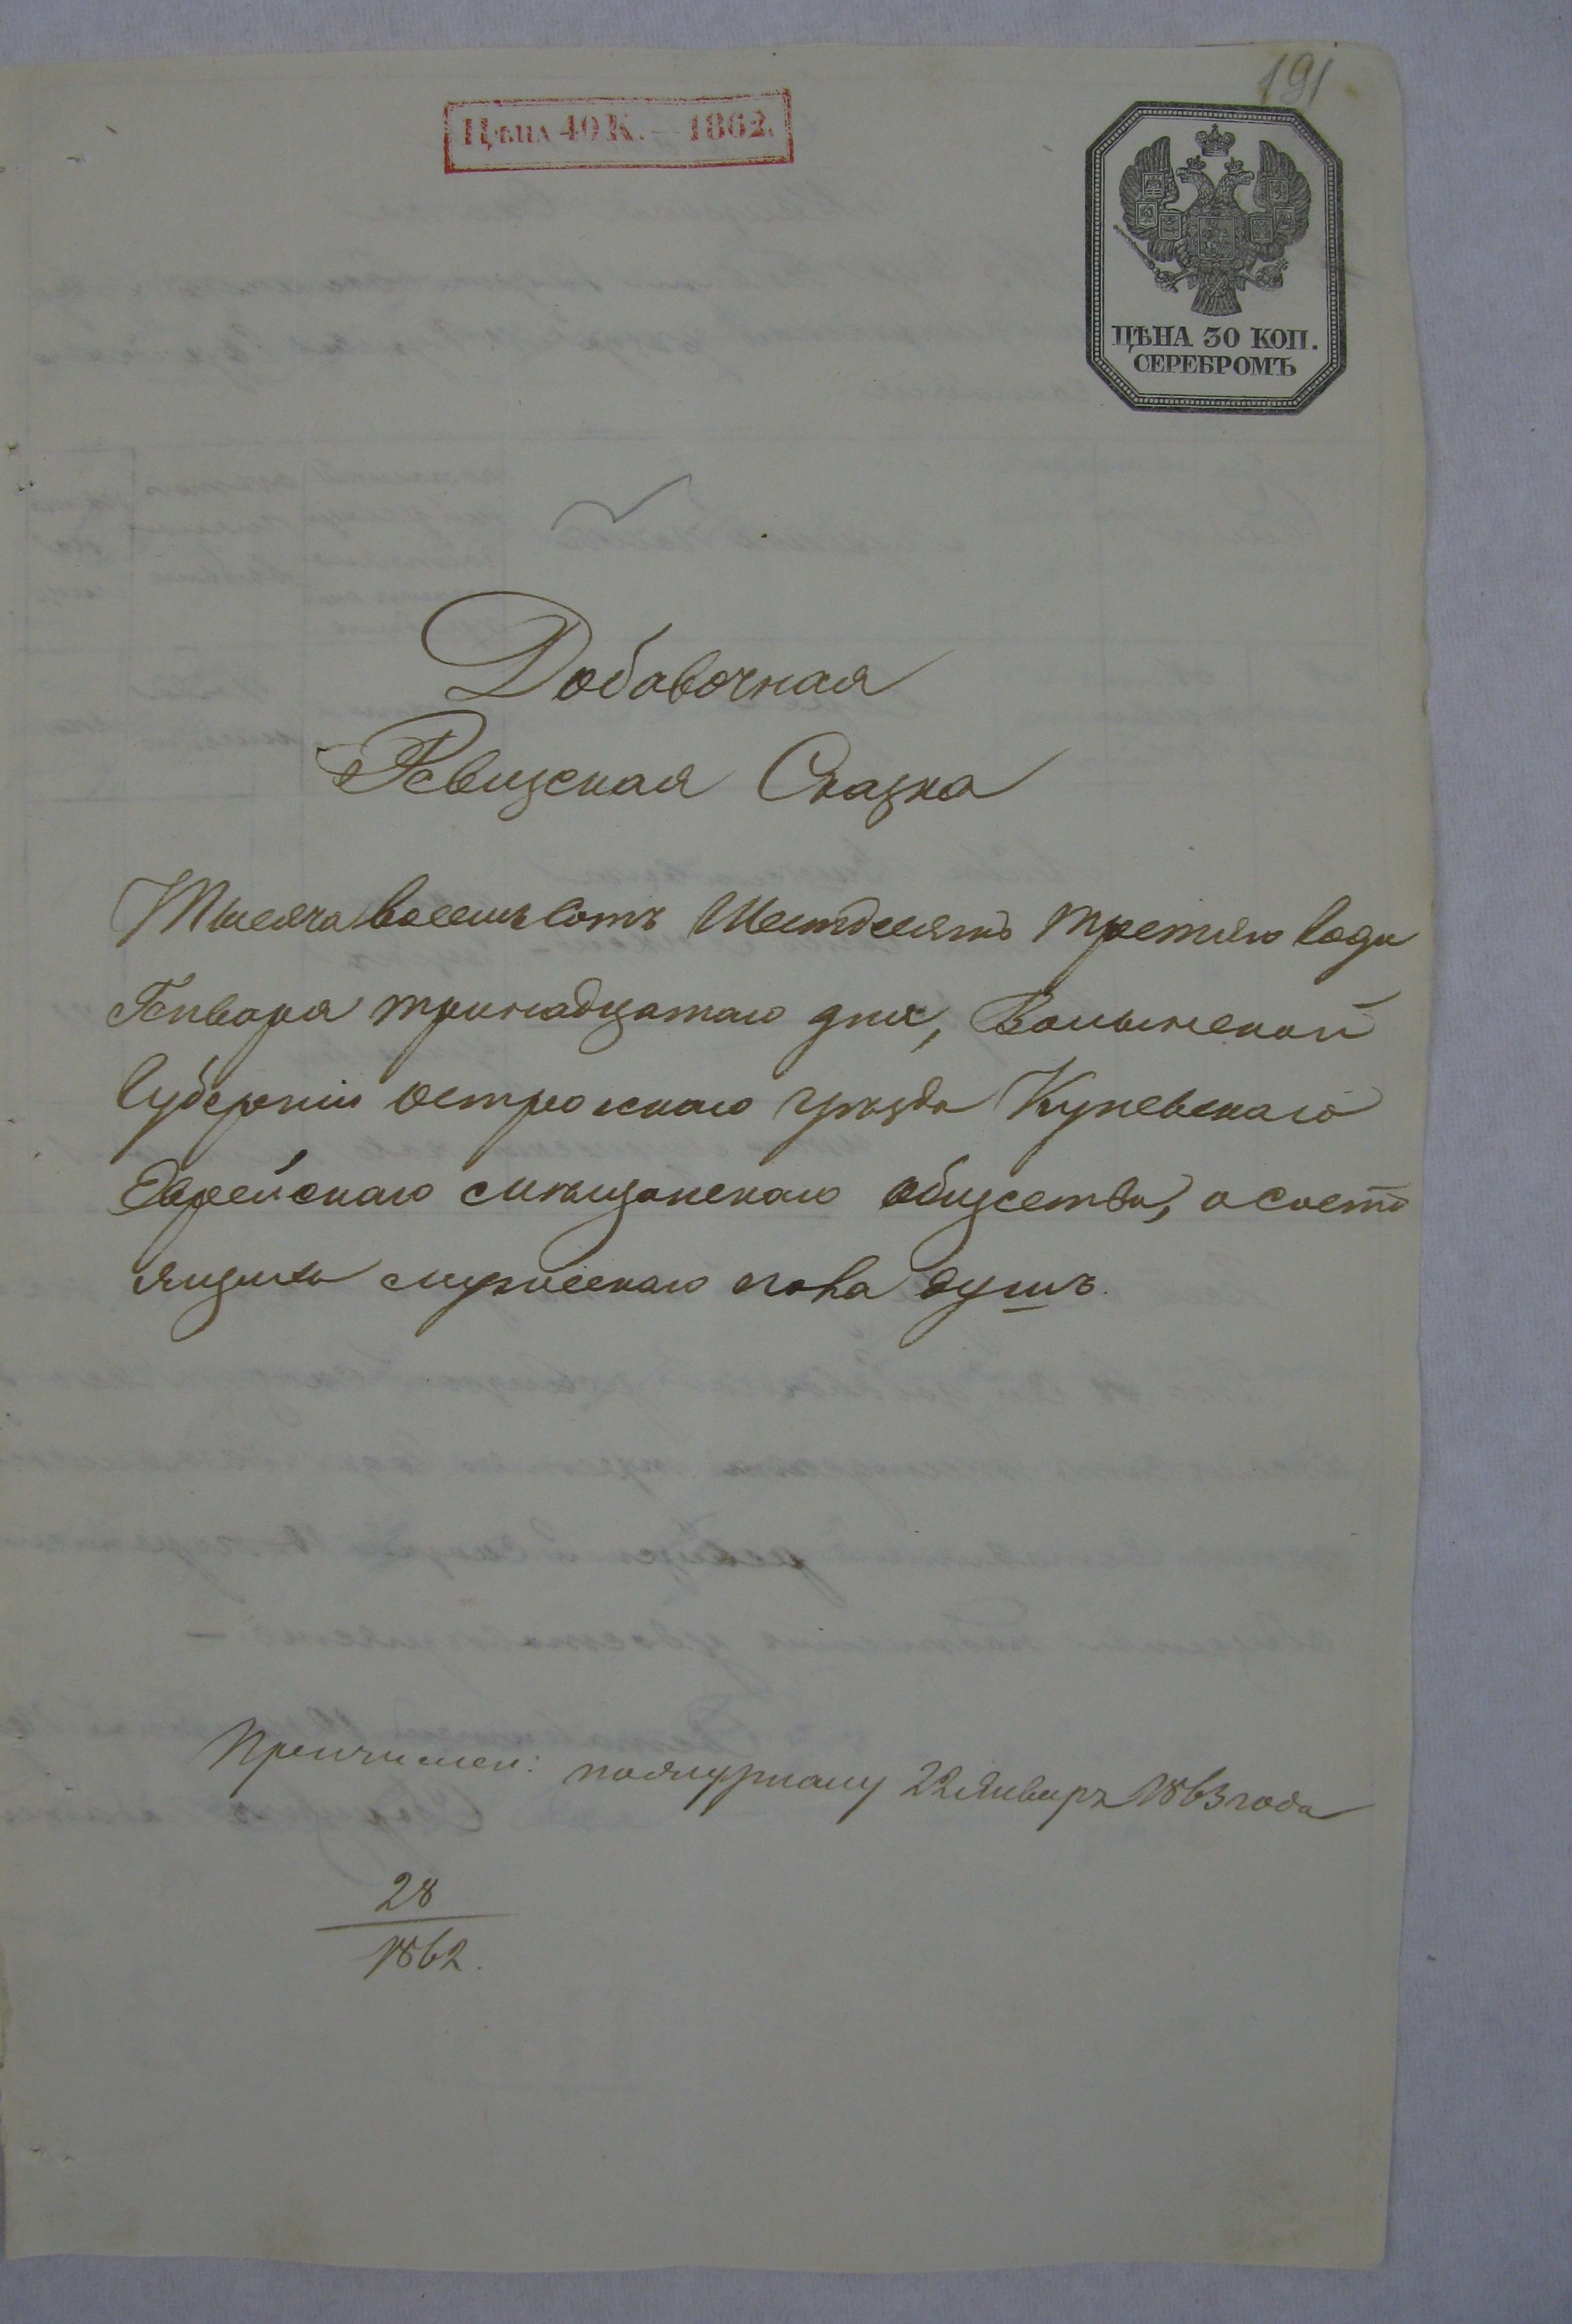 191
ЦѢНА 40 К. — 1862.
ЦѢНА 30 КОП.
СЕРЕБРОМЪ
Добавочная
Ревизская Сказка
Тысяча восемь сотъ Шестдесятъ третяго года
Генваря тринадцатаго дня, Волынской
Губерніи острожскаго уѣзда Куневскаго
Еврейскаго мѣщанскаго общества, о состо
ящихъ мужескаго пола душъ.
по журналу 22 Январъ 1863 года
28
1862.